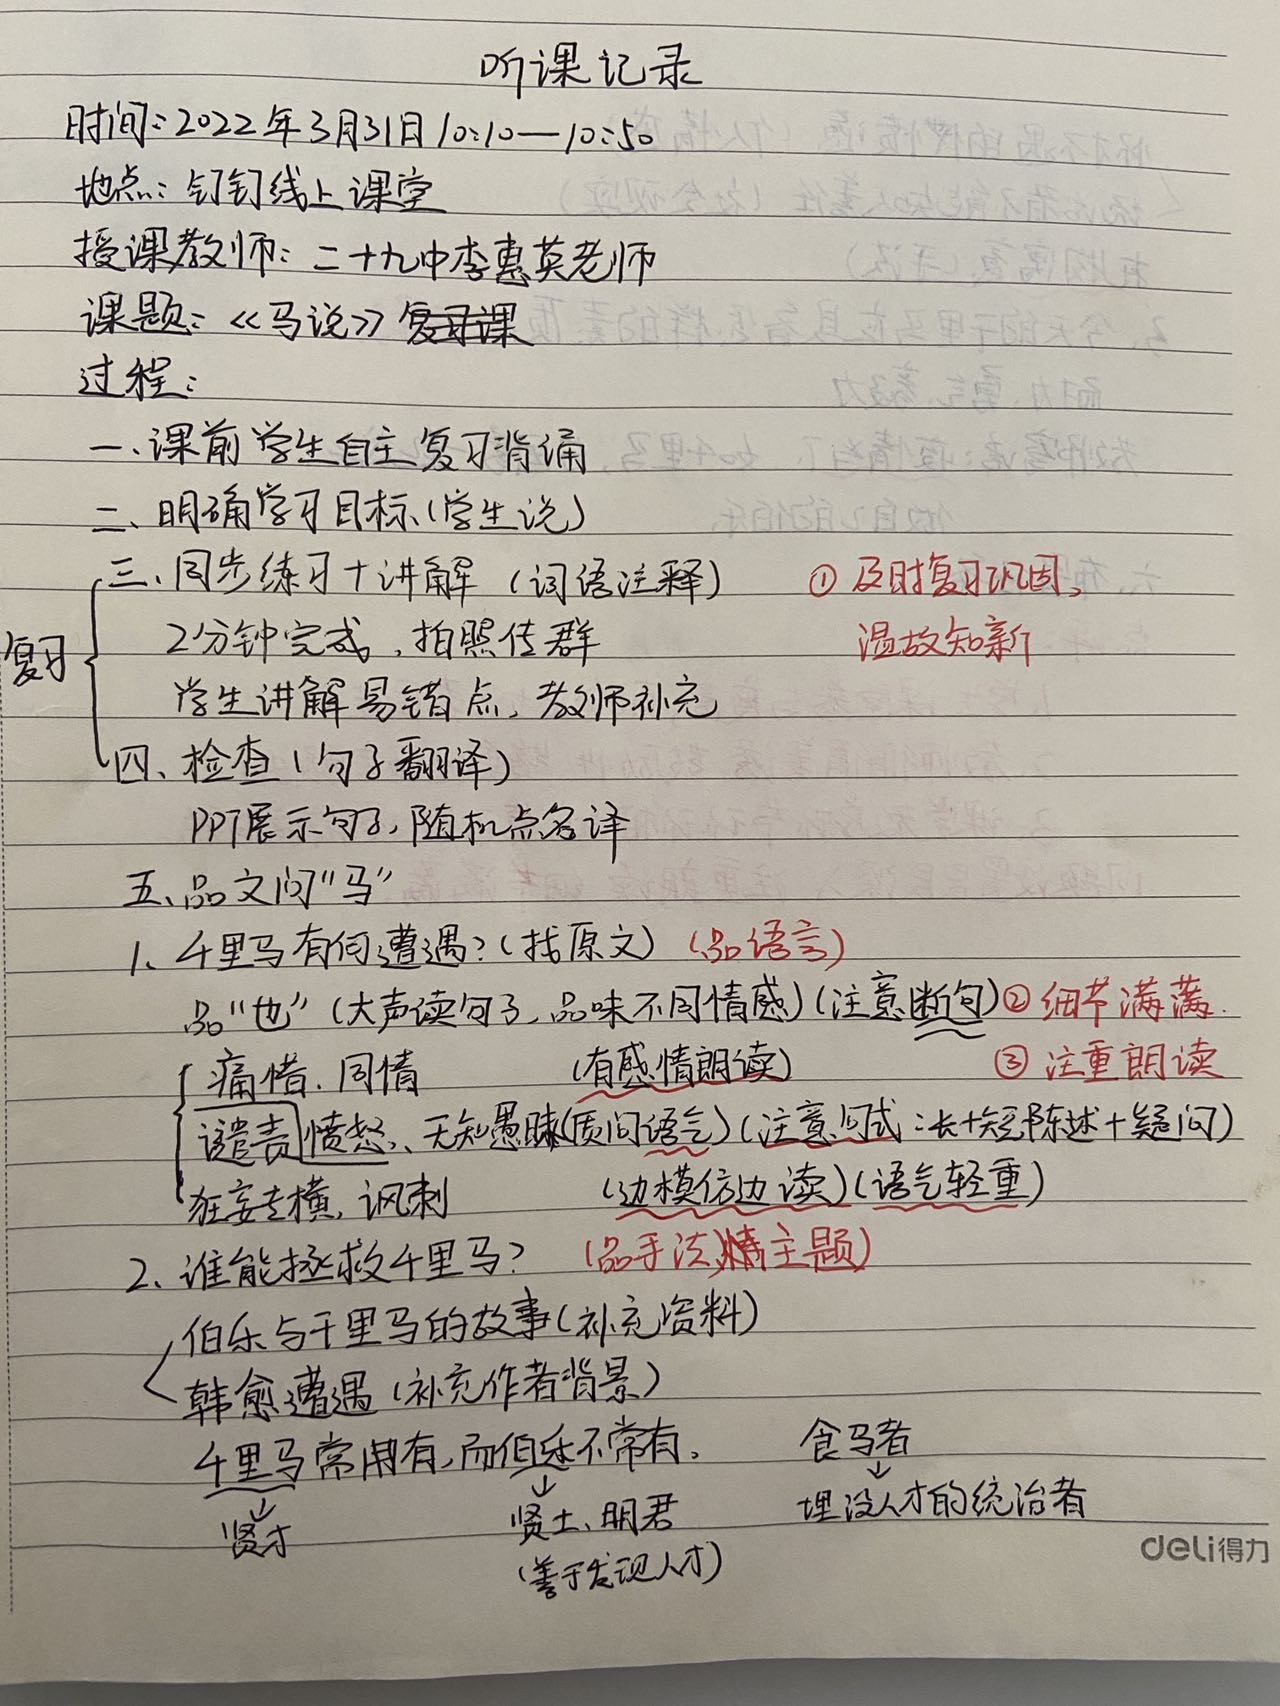 听课记录
时间：2022年3月31日10:10—10:50
地点：钉钉线上课堂
授课教师：二十九中李惠英老师
课题：《马说》复习课
过程：
一、课前学生自主复习背诵
二、明确学习目标（学生说）
三、同步练习+讲解（词语注释） ①及时复习巩固，
2分钟完成，拍照传群 温故知新
复习
学生讲解易错点，教师补充
四、检查（句子翻译）
PPT展示句子，随机点名译
五、品文问“马”
1、千里马有何遭遇？（找原文）（品语言）
品“也”（大声读句子，品味不同情感）（注意断句）②细节满满.
痛惜、同情 （有感情朗读） ③注重朗读
谴责愤怒、无知愚昧（质问语气）（注意句式：长+短 陈述+疑问）
狂妄专横，讽刺 （边模仿边读）（语气轻重）
2、谁能拯救千里马？ （品手法、主题）
伯乐与千里马的故事（补充资料）
韩愈遭遇（补充作者背景）
千里马常有，而伯乐不常有。 食马者
↓ ↓ ↓
贤才 贤士、明君 埋没人才的统治者
（善于发现人才）
deli得力